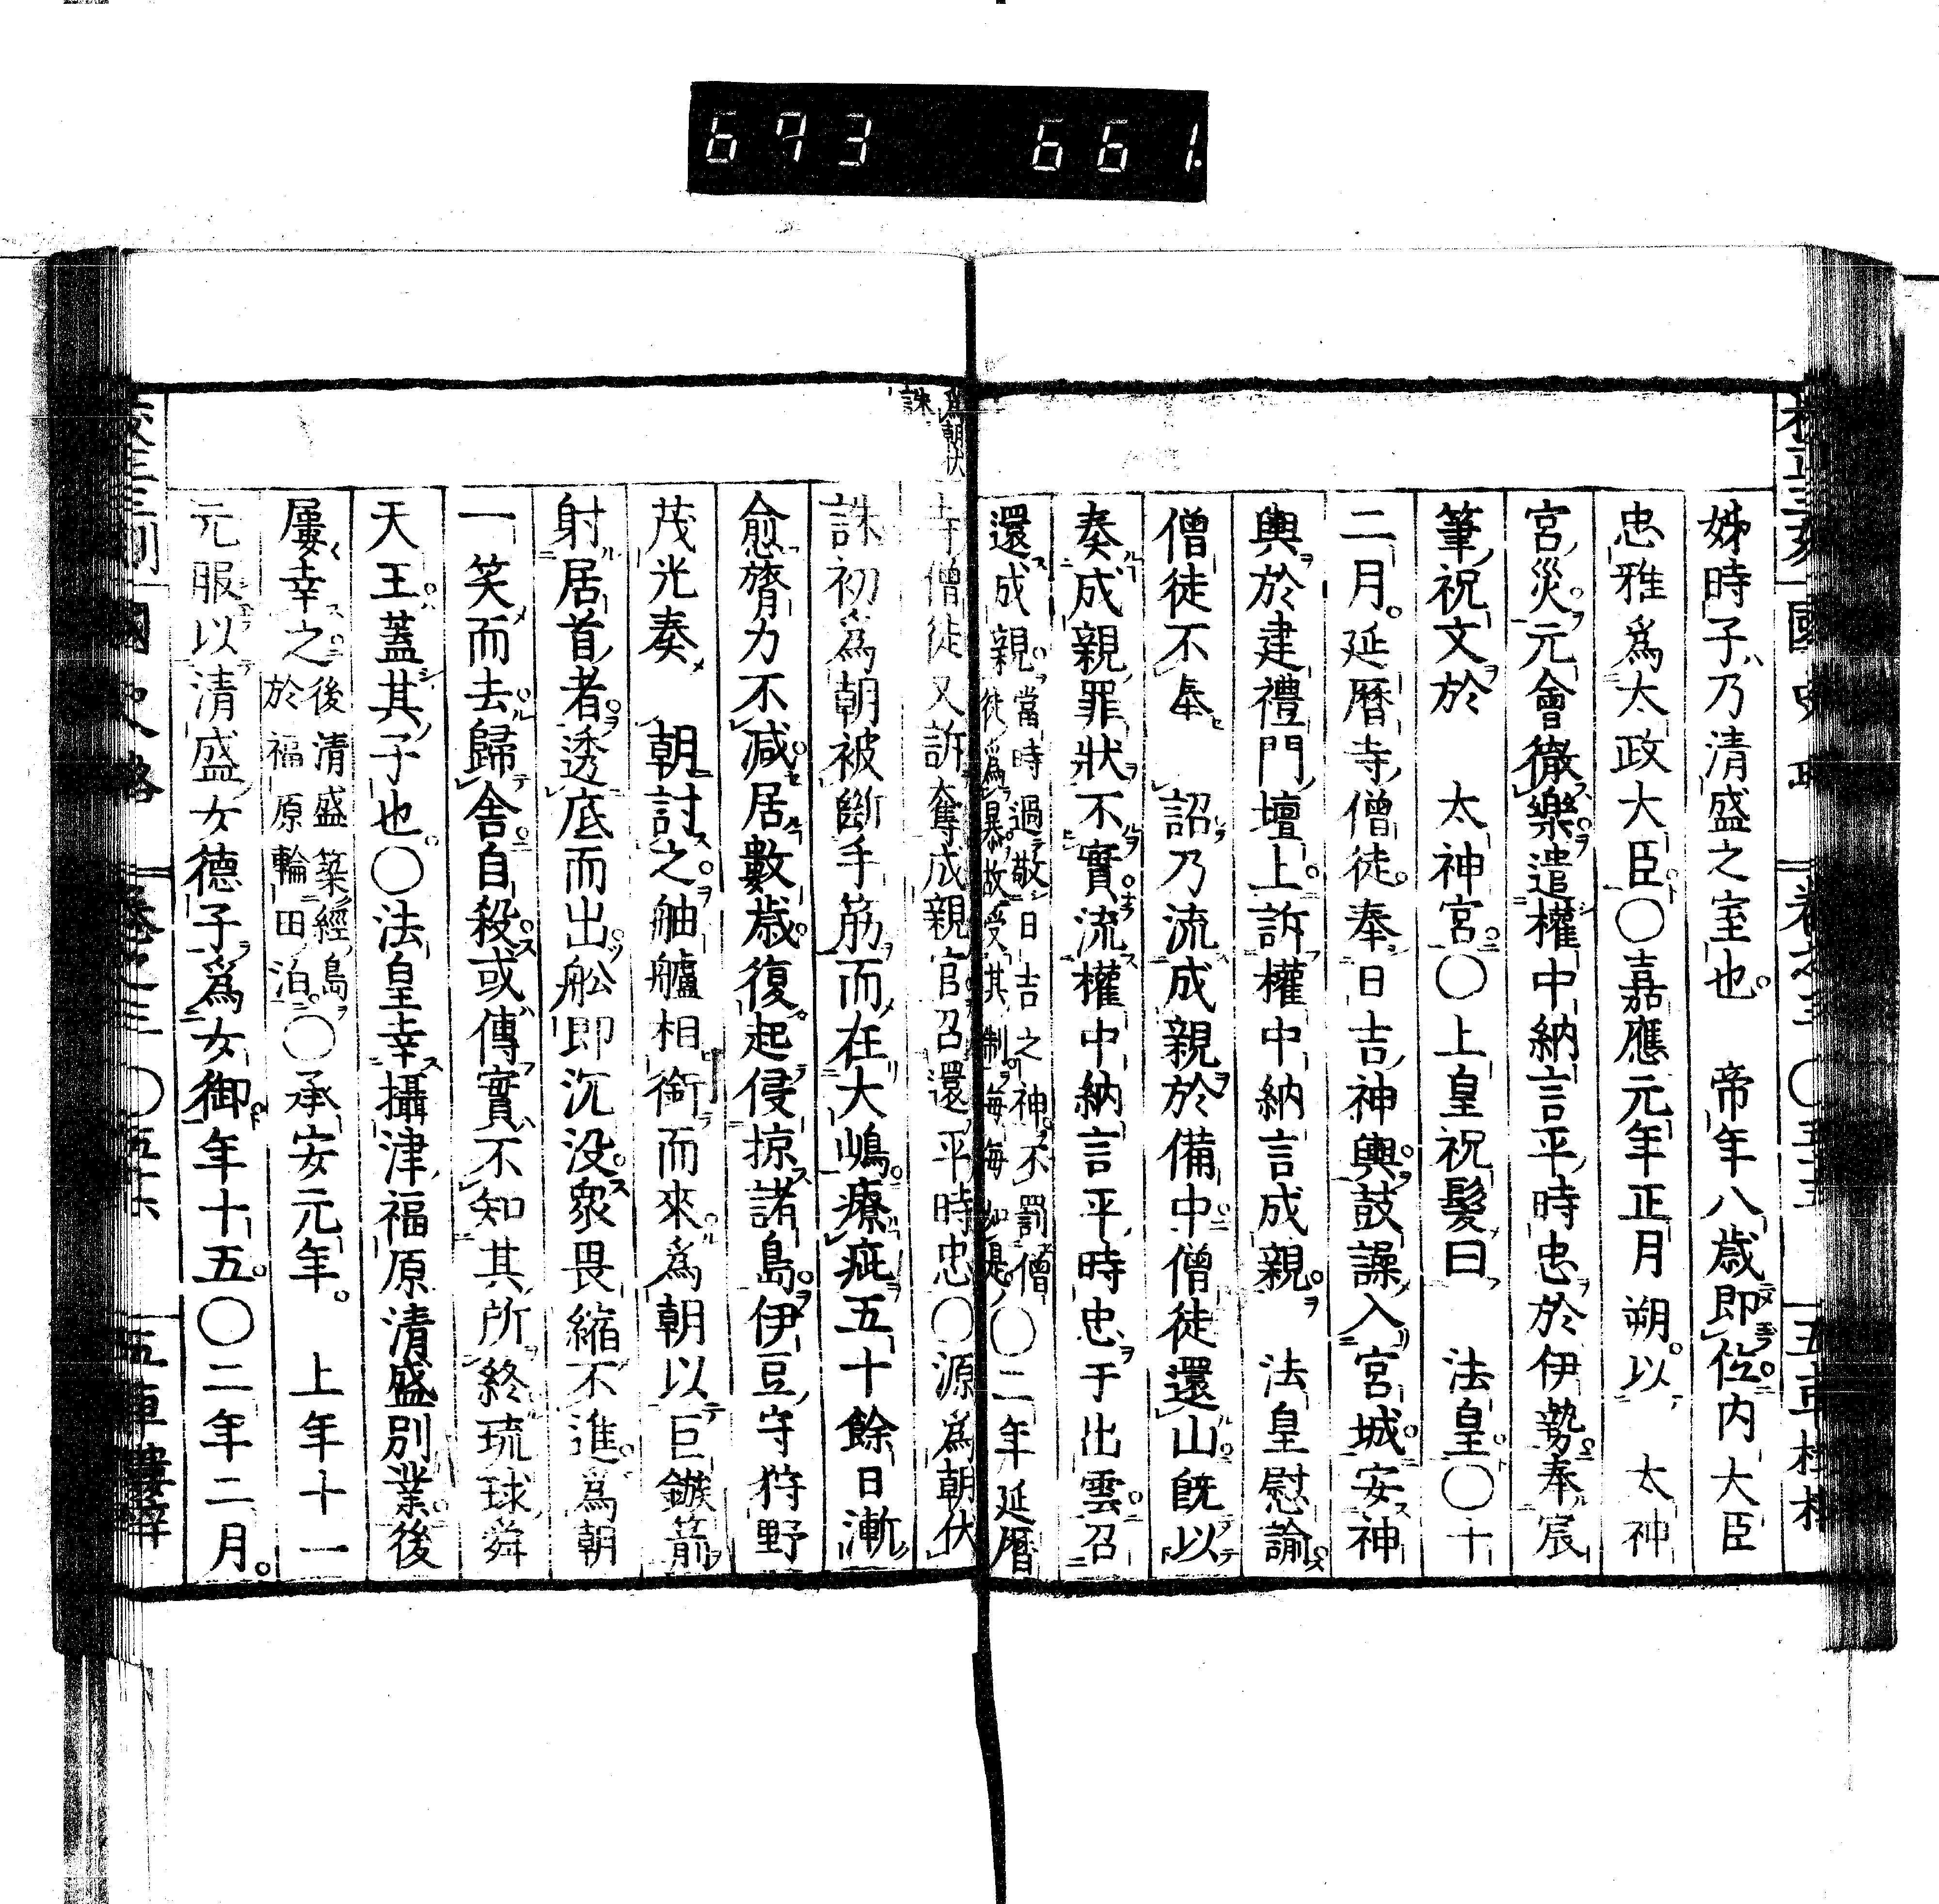 673 661
姊時子乃清盛之室也　帝年八歳即位内大臣
忠雅爲太政大臣〇嘉應元年正月朔以　太神
宮災元會徹樂遣權中納言平時忠於伊勢奉宸
筆祝文於　太神宮〇上皇祝髮曰　法皇〇十
二月延暦寺僧徒奉日吉神輿鼓譟入宮城安神
輿於建禮門壇上訴權中納言成親　法皇慰諭
僧徒不奉　詔乃流成親於備中僧徒還山既以
奏成親罪狀不實流權中納言平時忠于出雲召
還成親當時過敬日吉之神不罰僧徒爲暴故受其制毎毎如是〇二年延暦
寺僧徒又訴奪成親官召還平時忠〇源爲朝伏
爲朝伏誅
誅初爲朝被斷手筋而在大嶋療疵五十餘日漸
愈膂力不減居數歳復起侵掠諸島伊豆守狩野
茂光奏　朝討之舳艫相銜而來爲朝以巨鏃箭
射居首者透底而出舩即沉没衆畏縮不進爲朝
一笑而去歸舎自殺或傳實不知其所終琉球舜
天王蓋其子也〇法皇幸攝津福原清盛別業後
屢幸之後清盛築經島於福原輪田泊〇承安元年　上年十一
元服以清盛女德子爲女御年十五〇二年二月